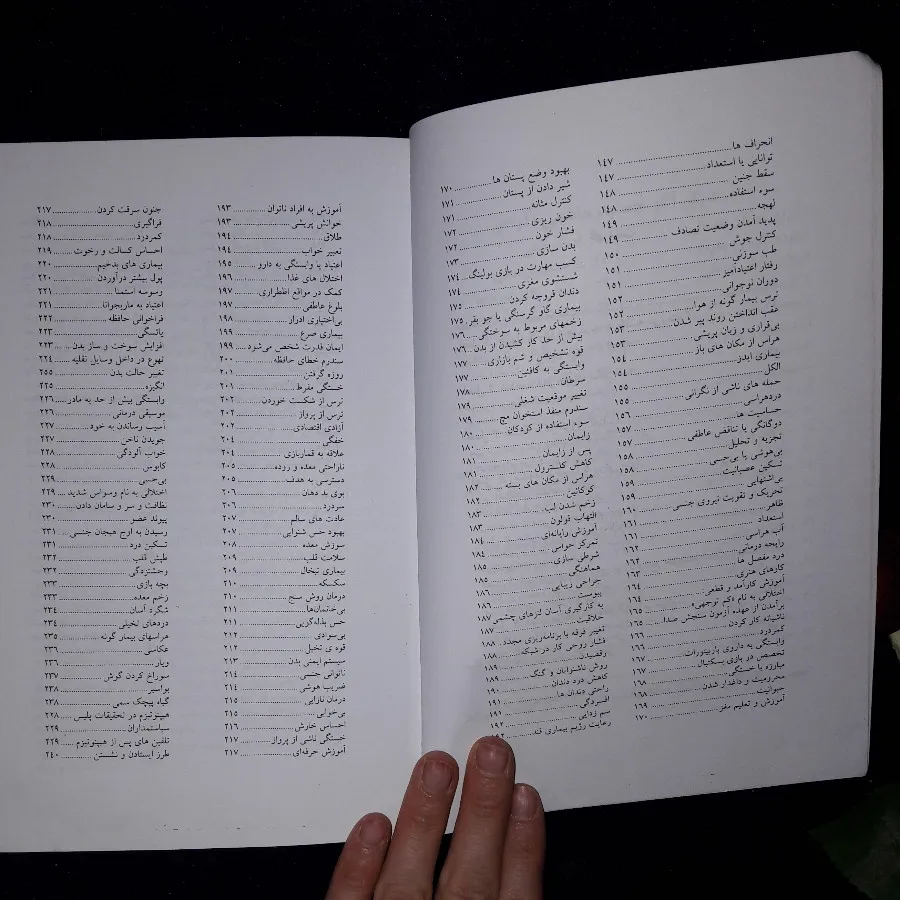 انحراف ها ... ۱۴۷
توانایی یا استعداد ... ۱۴۷
سقط جنین ... ۱۴۸
سوء استفاده ... ۱۴۸
لهجه ... ۱۴۹
پدید آمدن وضعیت تصادف ... ۱۴۹
کنترل جوش ... ۱۵۰
طب سوزنی ... ۱۵۱
رفتار اعتیادآمیز ... ۱۵۱
دوران نوجوانی ... ۱۵۲
ترس بیمار گونه از هوا ... ۱۵۲
عقب انداختن روند پیر شدن ... ۱۵۳
بی‌قراری و زبان پریشی ... ۱۵۳
هراس از مکان های باز ... ۱۵۴
بیماری ایدز ... ۱۵۴
الکل ... ۱۵۵
حمله های ناشی از نگرانی ... ۱۵۵
دردهراسی ... ۱۵۶
حساسیت ها ... ۱۵۷
دوگانگی یا تناقض عاطفی ... ۱۵۷
تجزیه و تحلیل ... ۱۵۸
بی‌هوشی یا بی‌حسی ... ۱۵۸
تسکین عصبانیت ... ۱۵۹
بی‌اشتهایی ... ۱۵۹
تحریک و تقویت نیروی جنسی ... ۱۶۰
ظاهر ... ۱۶۱
استعداد ... ۱۶۱
آب هراسی ... ۱۶۲
رایحه درمانی ... ۱۶۲
درد مفصل ها ... ۱۶۳
کارهای هنری ... ۱۶۳
آموزش کارآمد و قطعی ... ۱۶۴
اختلالی به نام «کم توجهی» ... ۱۶۵
برآمدن از عهده آزمون سنجش صدا ... ۱۶۵
ناشیانه کار کردن ... ۱۶۶
کمردرد ... ۱۶۶
وابستگی به داروی باربیتورات ... ۱۶۷
تخصص در بازی بسکتبال ... ۱۶۷
مبارزه با خستگی ... ۱۶۸
محرومیت و داغدار شدن ... ۱۶۸
حیوانیت ... ۱۶۹
آموزش و تعلیم مغز ... ۱۷۰
بهبود وضع پستان ها ... ۱۷۰
شیر دادن از پستان ... ۱۷۱
کنترل مثانه ... ۱۷۱
خون ریزی ... ۱۷۲
فشار خون ... ۱۷۲
بدن سازی ... ۱۷۳
کسب مهارت در بازی بولینگ ... ۱۷۴
شستشوی مغزی ... ۱۷۴
دندان قروچه کردن ... ۱۷۵
بیماری گاو گرسنگی یا جو بقر ... ۱۷۵
زخمهای مربوط به سوختگی ... ۱۷۶
بیش از حد کار کشیدن از بدن ... ۱۷۶
قوه تشخیص و شم بازاری ... ۱۷۷
وابستگی به کافئین ... ۱۷۷
سرطان ... ۱۷۸
تغییر موقعیت شغلی ... ۱۷۹
سندرم منفذ استخوان مچ ... ۱۷۹
سوء استفاده از کودکان ... ۱۸۰
زایمان ... ۱۸۰
پس از زایمان ... ۱۸۱
کاهش کلسترول ... ۱۸۱
هراس از مکان های بسته ... ۱۸۲
کوکائین ... ۱۸۲
زخم شدن لب ... ۱۸۳
التهاب قولون ... ۱۸۳
آموزش رایانه‌ای ... ۱۸۴
تمرکز حواس ... ۱۸۴
شرطی سازی ... ۱۸۵
هماهنگی ... ۱۸۵
جراحی زیبایی ... ۱۸۶
یبوست ... ۱۸۶
به کارگیری آسان لنزهای چشمی ... ۱۸۷
خلاقیت ... ۱۸۷
تغییر فرقه یا برنامه‌ریزی مجدد ... ۱۸۸
فشار روحی کار در شبکه ... ۱۸۸
رقصیدن ... ۱۸۹
روش ناشنوایان و گنگ ... ۱۸۹
کاهش درد دندان ... ۱۹۰
راحتی دندان ها ... ۱۹۱
افسردگی ... ۱۹۱
سم زدایی ... ۱۹۲
رعایت رژیم بیماری قند ... ۱۹۲
آموزش به افراد ناتوان ... ۱۹۳
خوانش پریشی ... ۱۹۳
طلاق ... ۱۹۴
تعبیر خواب ... ۱۹۴
اعتیاد یا وابستگی به دارو ... ۱۹۵
اختلال های غذا ... ۱۹۶
کمک در مواقع اظطراری ... ۱۹۷
بلوغ عاطفی ... ۱۹۷
بی‌اختیاری ادرار ... ۱۹۸
بیماری صرع ... ۱۹۹
ایمان قدرت شخص می‌شود ... ۱۹۹
سندرم خطای حافظه ... ۲۰۰
روزه گرفتن ... ۲۰۱
خستگی مفرط ... ۲۰۱
ترس از شکست خوردن ... ۲۰۲
ترس از پرواز ... ۲۰۲
آزادی اقتصادی ... ۲۰۲
خفگی ... ۲۰۴
علاقه به قماربازی ... ۲۰۴
ناراحتی معده و روده ... ۲۰۵
دسترسی به هدف ... ۲۰۵
بوی بد دهان ... ۲۰۶
سردرد ... ۲۰۶
عادت های سالم ... ۲۰۷
بهبود حس شنوایی ... ۲۰۷
سوزش معده ... ۲۰۸
سلامت قلب ... ۲۰۹
بیماری تبخال ... ۲۰۹
سکسکه ... ۲۱۰
درمان روش سنج ... ۲۱۰
بی‌خانمان‌ها ... ۲۱۱
حس بذله‌گویی ... ۲۱۱
بی‌سودی ... ۲۱۲
قوه ی تخیل ... ۲۱۲
سیستم ایمنی بدن ... ۲۱۳
ناتوانی جنسی ... ۲۱۴
ضریب هوشی ... ۲۱۴
درمان نازایی ... ۲۱۵
بی‌خوابی ... ۲۱۵
احساس خارش ... ۲۱۶
خستگی ناشی از پرواز ... ۲۱۷
آموزش حرفه‌ای ... ۲۱۷
جنون سرقت کردن ... ۲۱۷
فراگیری ... ۲۱۸
کمردرد ... ۲۱۸
احساس کسالت و رخوت ... ۲۱۹
بیماری های بدخیم ... ۲۲۰
پول بیشتر درآوردن ... ۲۲۰
وسوسه استمنا ... ۲۲۱
اعتیاد به ماریجوانا ... ۲۲۱
فراخوانی حافظه ... ۲۲۲
یائسگی ... ۲۲۳
افزایش سوخت و ساز بدن ... ۲۲۳
تهوع در داخل وسایل نقلیه ... ۲۲۴
تغییر حالت بدن ... ۲۵۵
انگیزه ... ۲۲۵
وابستگی بیش از حد به مادر ... ۲۲۶
موسیقی درمانی ... ۲۲۶
آسیب رساندن به خود ... ۲۲۷
جویدن ناخن ... ۲۲۷
خواب آلودگی ... ۲۲۸
کابوس ... ۲۲۸
بی‌حسی ... ۲۲۹
اختلالی به نام وسواس شدید ... ۲۲۹
نظافت و سر و سامان دادن ... ۲۳۰
پیوند عضو ... ۲۳۰
رسیدن به اوج هیجان جنسی ... ۲۳۱
تسکین درد ... ۲۳۱
طپش قلب ... ۲۳۲
وحشتزدگی ... ۲۳۲
بچه بازی ... ۲۳۳
زخم معده ... ۲۳۳
شگرد آسان ... ۲۳۴
دردهای تخیلی ... ۲۳۴
هراسهای بیمار گونه ... ۲۳۵
عکاسی ... ۲۳۶
ویار ... ۲۳۶
سوراخ کردن گوش ... ۲۳۷
بواسیر ... ۲۳۸
گیاه پیچک سمی ... ۲۳۸
هیپنوتیزم در تحقیقات پلیس ... ۲۲۸
سیاستمداران ... ۲۲۹
تلقین های پس از هیپنوتیزم ... ۲۲۹
طرز ایستادن و نشستن ... ۲۴۰